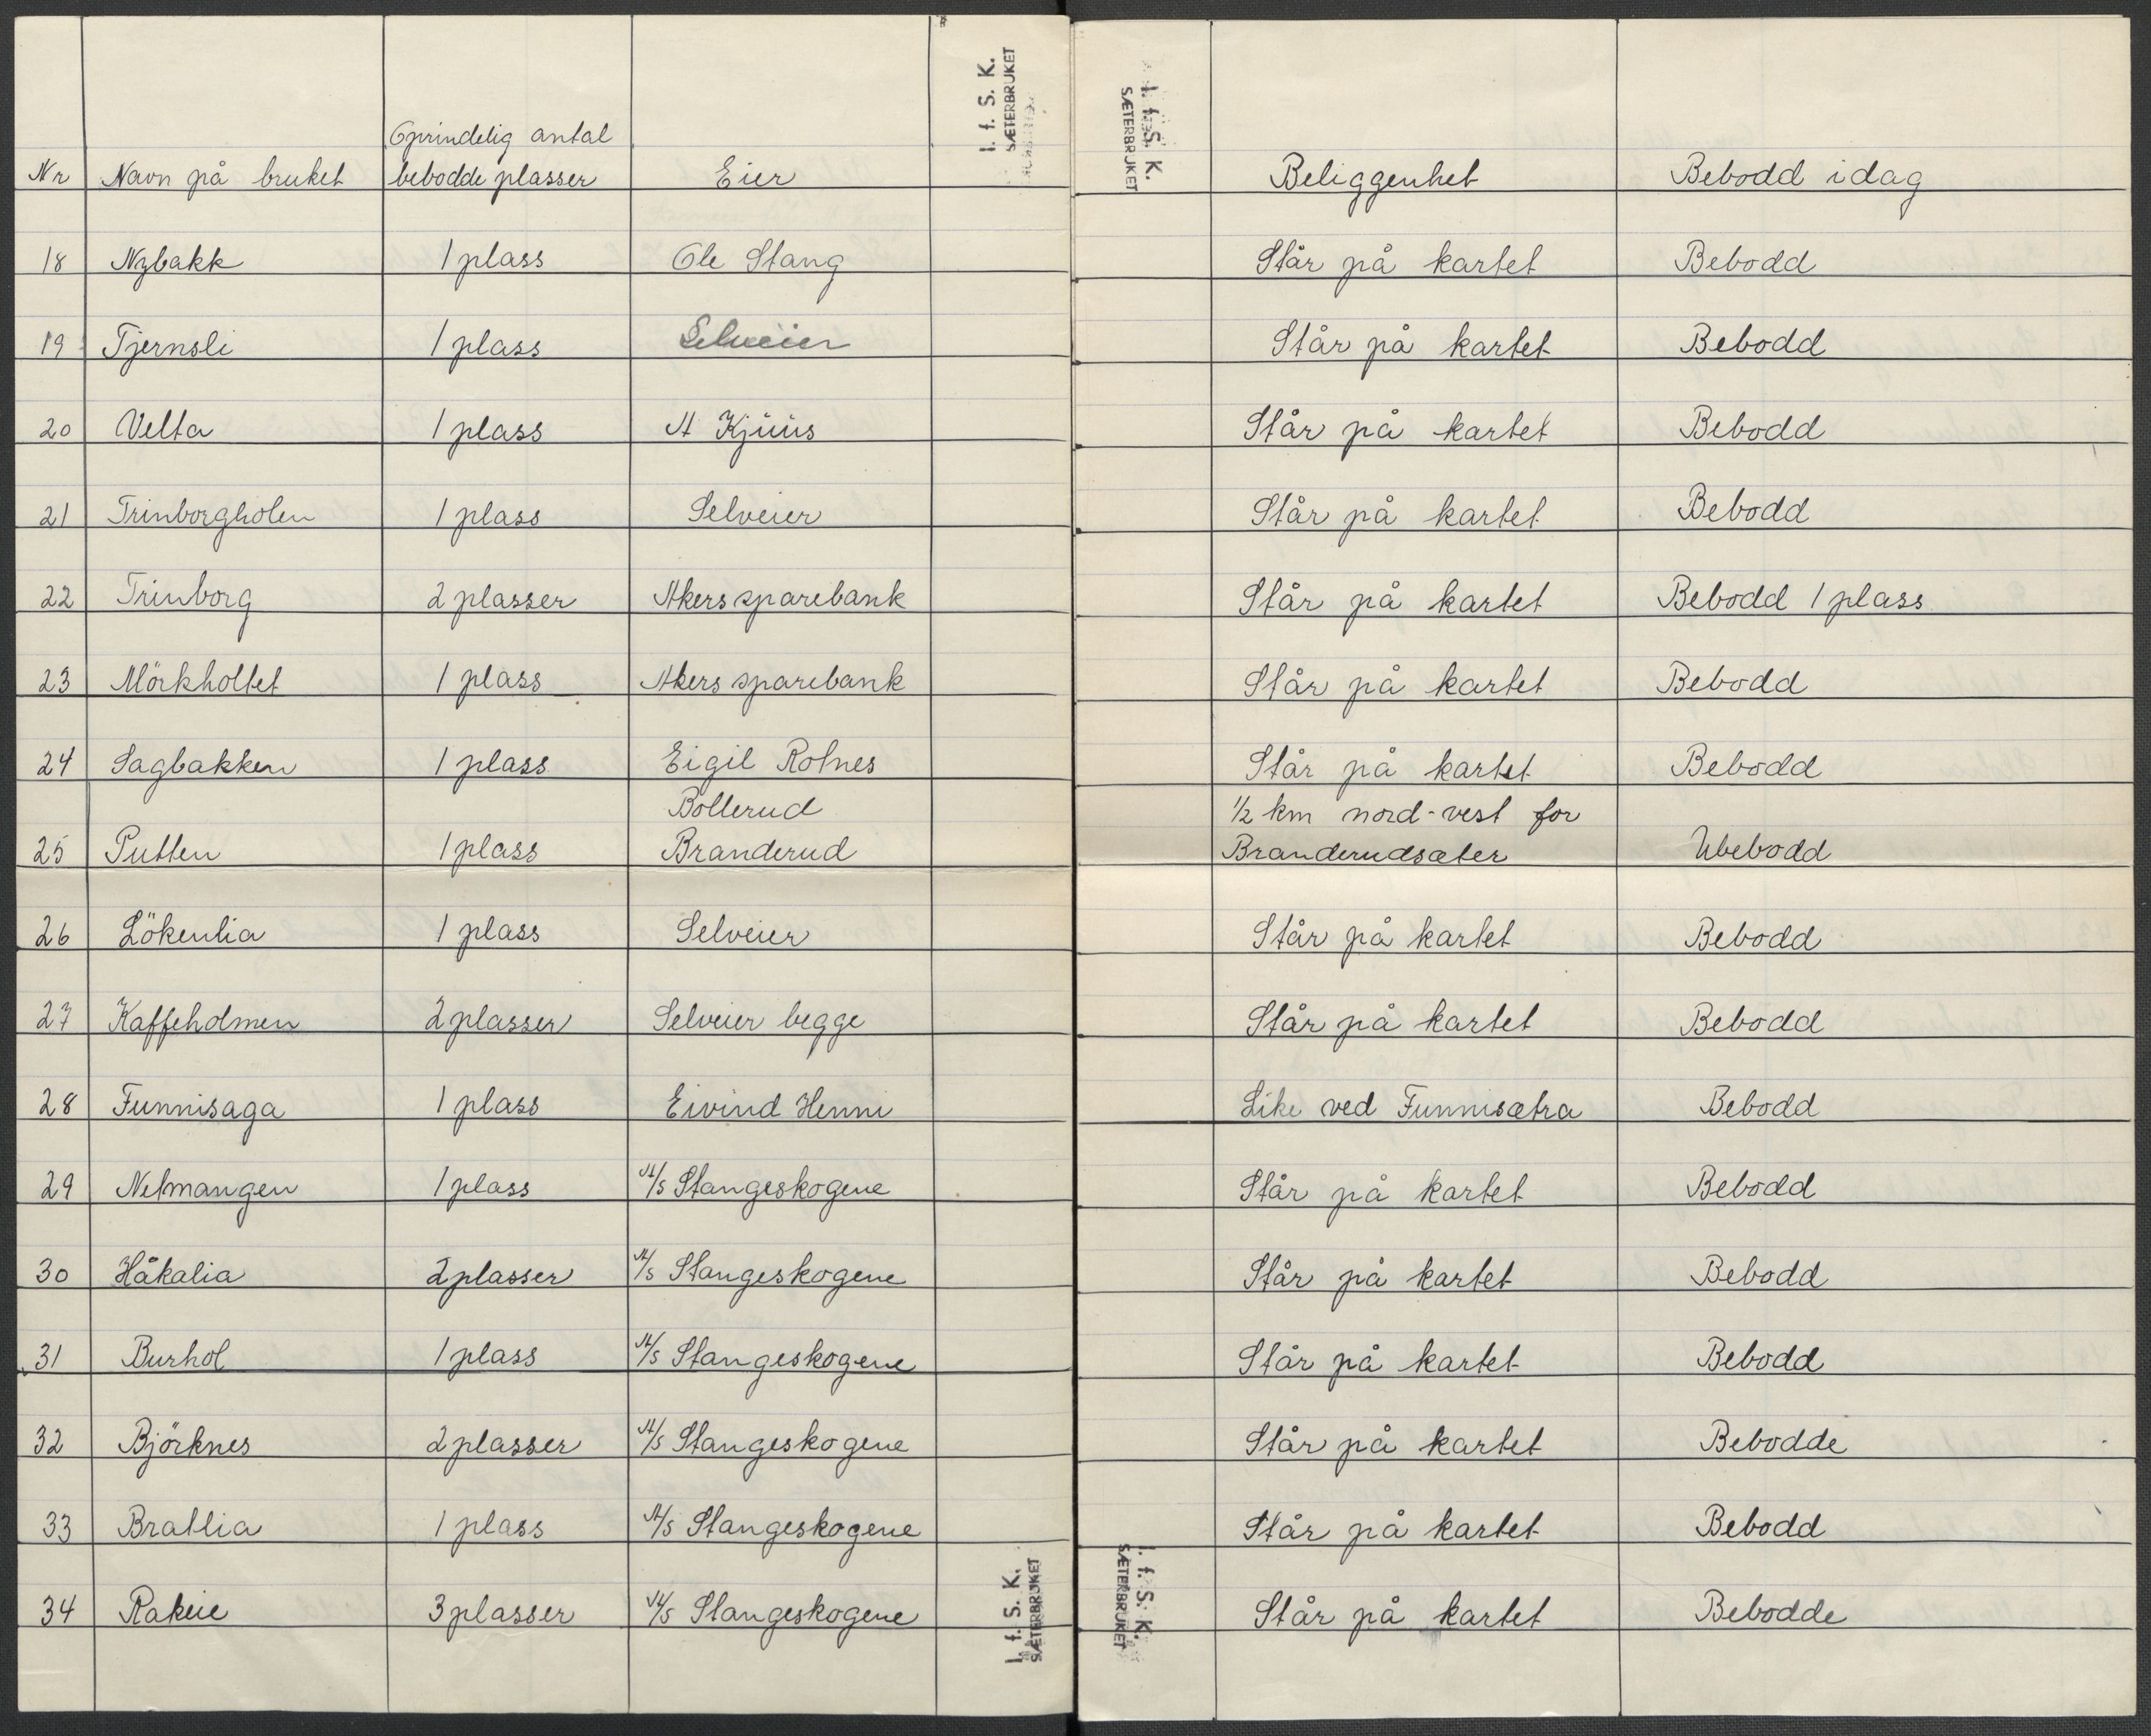 I. f. S. K.
SÆTERBRUKET
I. f. S. K.
SÆTERBRUKET
Oprindelig antal
Nr Navn på bruket bebodde plasser Eier Beliggenhet Bebodd idag
18 Nybakk 1 plass Ole Stang Står på kartet Bebodd
19 Tjernsli 1 plass Selveier Står på kartet Bebodd
20 Velta 1 plass A Kjuus Står på kartet Bebodd
21 Trinborgholen 1 plass Selveier Står på kartet Bebodd
22 Trinborg 2 plasser Akers sparebank Står på kartet Bebodd 1 plass
23 Mörkholtet 1 plass Akers sparebank Står på kartet Bebodd
24 Sagbakken 1 plass Eigil Rotnes Står på kartet Bebodd
Bollerud 1/2 km nord-vest for
25 Putten 1 plass Branderud Branderudsæter Ubebodd
26 Lökenlia 1 plass Selveier Står på kartet Bebodd
27 Kaffeholmen 2 plasser Selveier begge Står på kartet Bebodd
28 Funnisaga 1 plass Eivind Henni Like ved Funnisætra Bebodd
29 Netmangen 1 plass A/S Stangeskogene Står på kartet Bebodd
30 Håkalia 2 plasser A/S Stangeskogene Står på kartet Bebodd
31 Burhol 1 plass A/S Stangeskogene Står på kartet Bebodd
32 Björknes 2 plasser A/S Stangeskogene Står på kartet Bebodde
33 Bratlia 1 plass A/S Stangeskogene Står på kartet Bebodd
34 Rakeie 3 plasser A/S Stangeskogene Står på kartet Bebodde
I. f. S. K.
SÆTERBRUKET
I. f. S. K.
SÆTERBRUKET